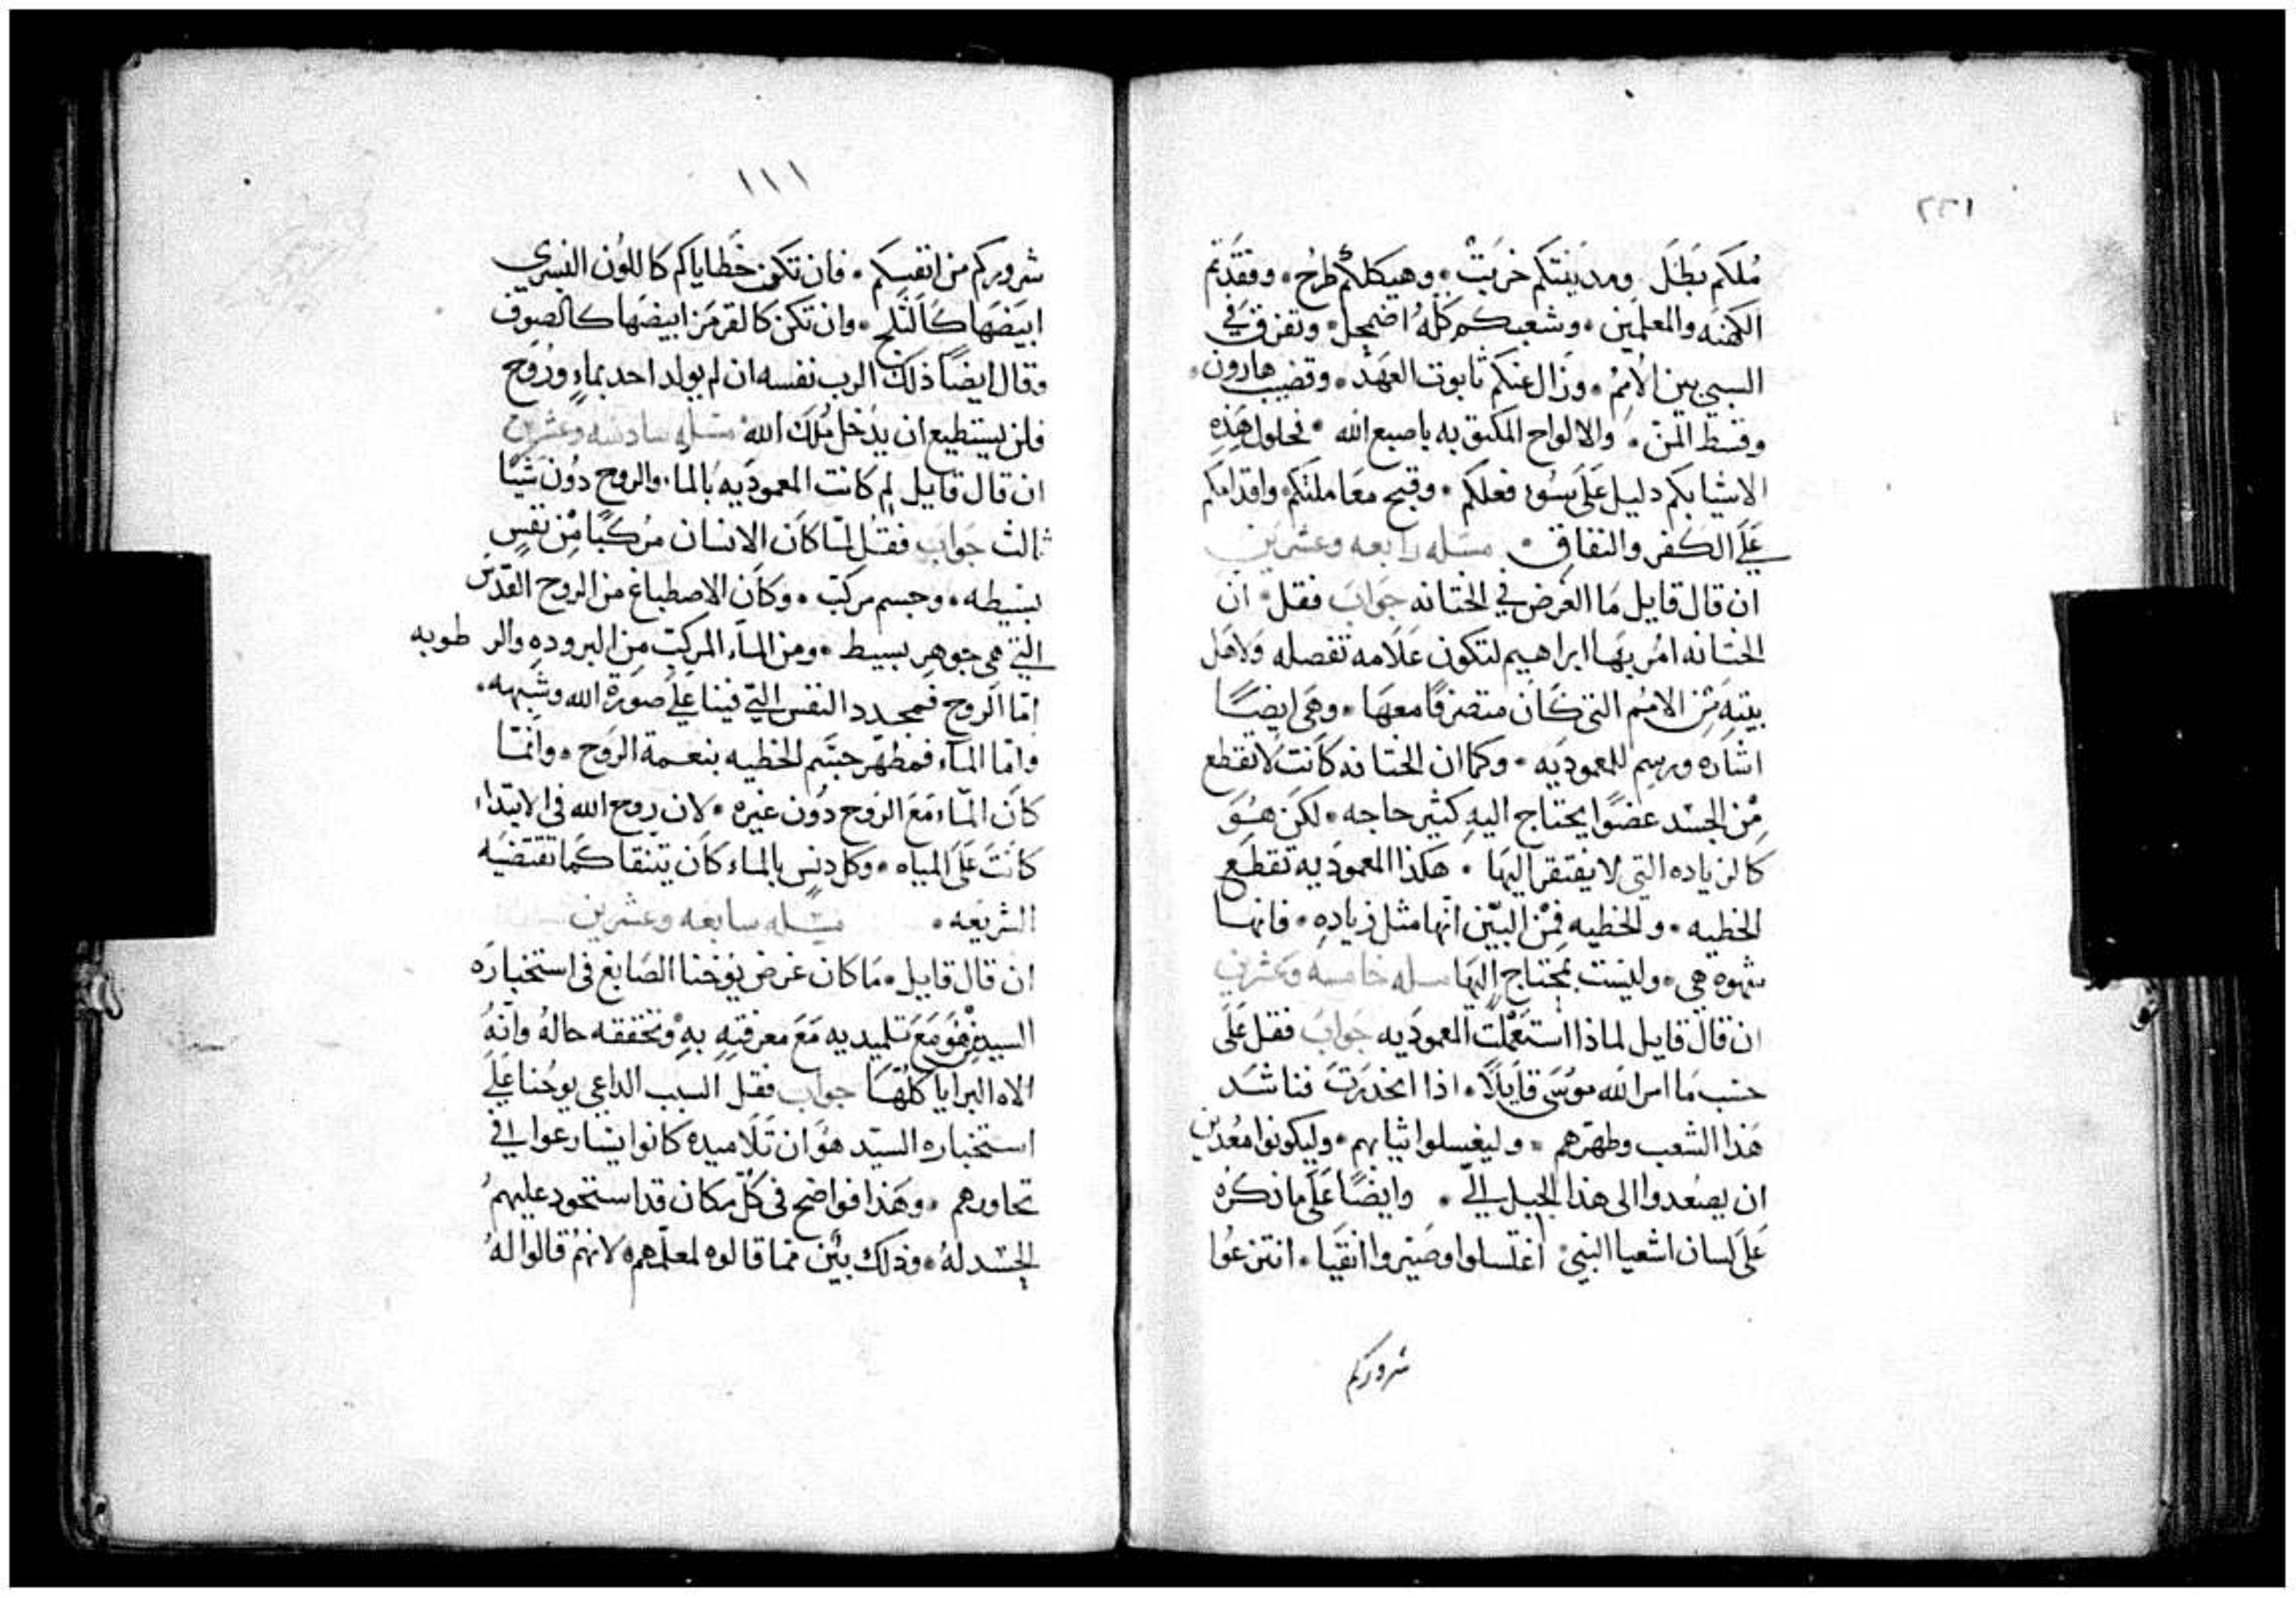 ٢٢١
مُلكَم بَطَلَ ومدينتكم خربَتْ . وهيكلكُم طُرِحْ . وفقَدتم
الكهَنه والمعلمين . وشعبكم كلّهُ اضمحل . وتفرق في
السبي بين الأمم . وزَال عنكم تابوت العَهد . وقضيب هارون .
وقسط المن . والالواح المكتوبه باصبع الله . فحلول هَذِهِ
الاشيا بكم دليل عَلَى سُو فعلكم . وقبح معَاملتكم واقدامكم
عَلَى الكفر والنفاق . مسله رابعه وعشرين
ان قال قايل مَا الغرض في الختانه جَوابَ فقل . ان
الختانه امُر بهَا ابراهيم لتكون عَلَامه تفصله ولاهَل
بيته مِن الامُم التي كَان متصرفًا معهَا . وهَى ايضًا
اشاره ورسم للمعموديه . وكما ان الختانه كَانت لا تقطع
مِن الجسَد عضوًا يحتاج اليهِ كثير حاجه . لكن هُوَ
كالزياده التي لا يفتقر اليهَا . هَكذا المعموديه تقطَع
الخطيه . والخطيه فِمن البيّن انّها مثل زيادهِ . فانها
شهوه هي . وليست بمحتاج إليهَا مسله خامسه وعشرين
ان قال قايل لماذا استعَملت المعموديه جَوابَ فقل عَلَى
حسَب مَا امر الله موسَى قايلًا . اذا انحدرتَ فناشَد
هَذا الشعب وطهّرهم . وليغسلوا ثيابهم . وليكونوا معُدين
ان يصعدوا الى هذا الجبل اليّ . وايضًا عَلَى مَا ذكرَه
عَلَى لسان اشعيا النبي اغتسلوا وصَيروا انقيَا . انتزعُوا
شروركم
١١١
شروركم من انفسِكم . فان تكن خَطاياكم كاللون الفسري
ابيّضهَا كَالثَلج . وان تكن كالقرمَز ابيضهَا كالصوف
وقال ايضًا ذلك الرب نفسه ان لم يولد احد بماءٍ ورُوح
فلن يستطيع ان يدَخل مُلكَ الله . مسله سادسه وعشرين
ان قال قايل لم كانت المعموديه بالما. والروح دُون شيًا
ثالث جَوابَ فقل لمّا كَان الانسان مركبًا مِن نفسٍ
بسيطه . وجسم مركبّ . وكَان الاصطباغ من الروح القدس
التي هي جوهرٍ بسيط . ومن الماء المركب مِن البرودهِ والرطوبه
امّا الروح فمجدد النفس التي فينا عَلَى صورَة الله وشَبهه .
وامّا الماء فمطهّر جسَم الخطيه بنعمة الروَح . وانما
كان الماء مَع الروح دون غيره . لان روح الله في الابتداء
كانتَ عَلَى المياه . وكل دنسٍ بالماء كان يتنقا كمَا تقتضيَه
الشريعه . مسله سابعه وعشرين
ان قال قايل . مَا كان غرض يوَحنا الصَابغ في استخبارَه
السيد هُوَ مَع تلميديه مَع معرفتهِ بهِ وتحققه حالهُ وانّهُ
الاه البرايا كلّهَا جوابَ فقل السبب الداعي يوحُنا عَلَى
استخباره السيّد هوَ ان تلَاميده كانوا يتسارعوا في
تحاورهم . وهَذا فواضح في كلّ مكان قد استحود عليهمُ
الحسَد لهُ . وذلك بيّن مما قالوه لمعلّمهم لانهمُ قالوا لهُ